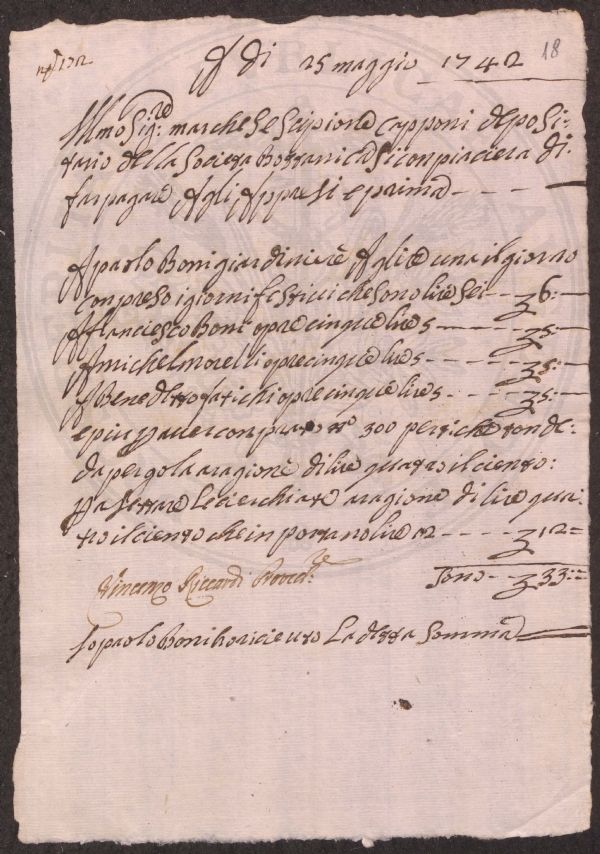 A di 25 maggio 1742 18
Ill.mo Sig.re marchese Scipione Capponi deposi:
tario della Societa Bottanica Si conpiacera di
far pagare Agli Appresi e prima
A paolo Boni giardiniere A lire una il giorno
conpreso i giorni festivi che sono lire sei 6:
A Franciesco Boni opre cinque lire 5 5:
A michel morelli opre cinque lire 5 5:
A Benedetto fatichi opre cinque lire 5 5:
e piu p aver conprato n.o 300 pertiche tonde:
da pergola a ragione di lire quattro il ciento:
p a settare le cierchiate a ragione di lire qua:
tro il ciento che in portano lire 12 12=
Vincenzio Riccardi Proved.re Sono 33:=
Io paolo Boni ho ricieuto La detta Somma